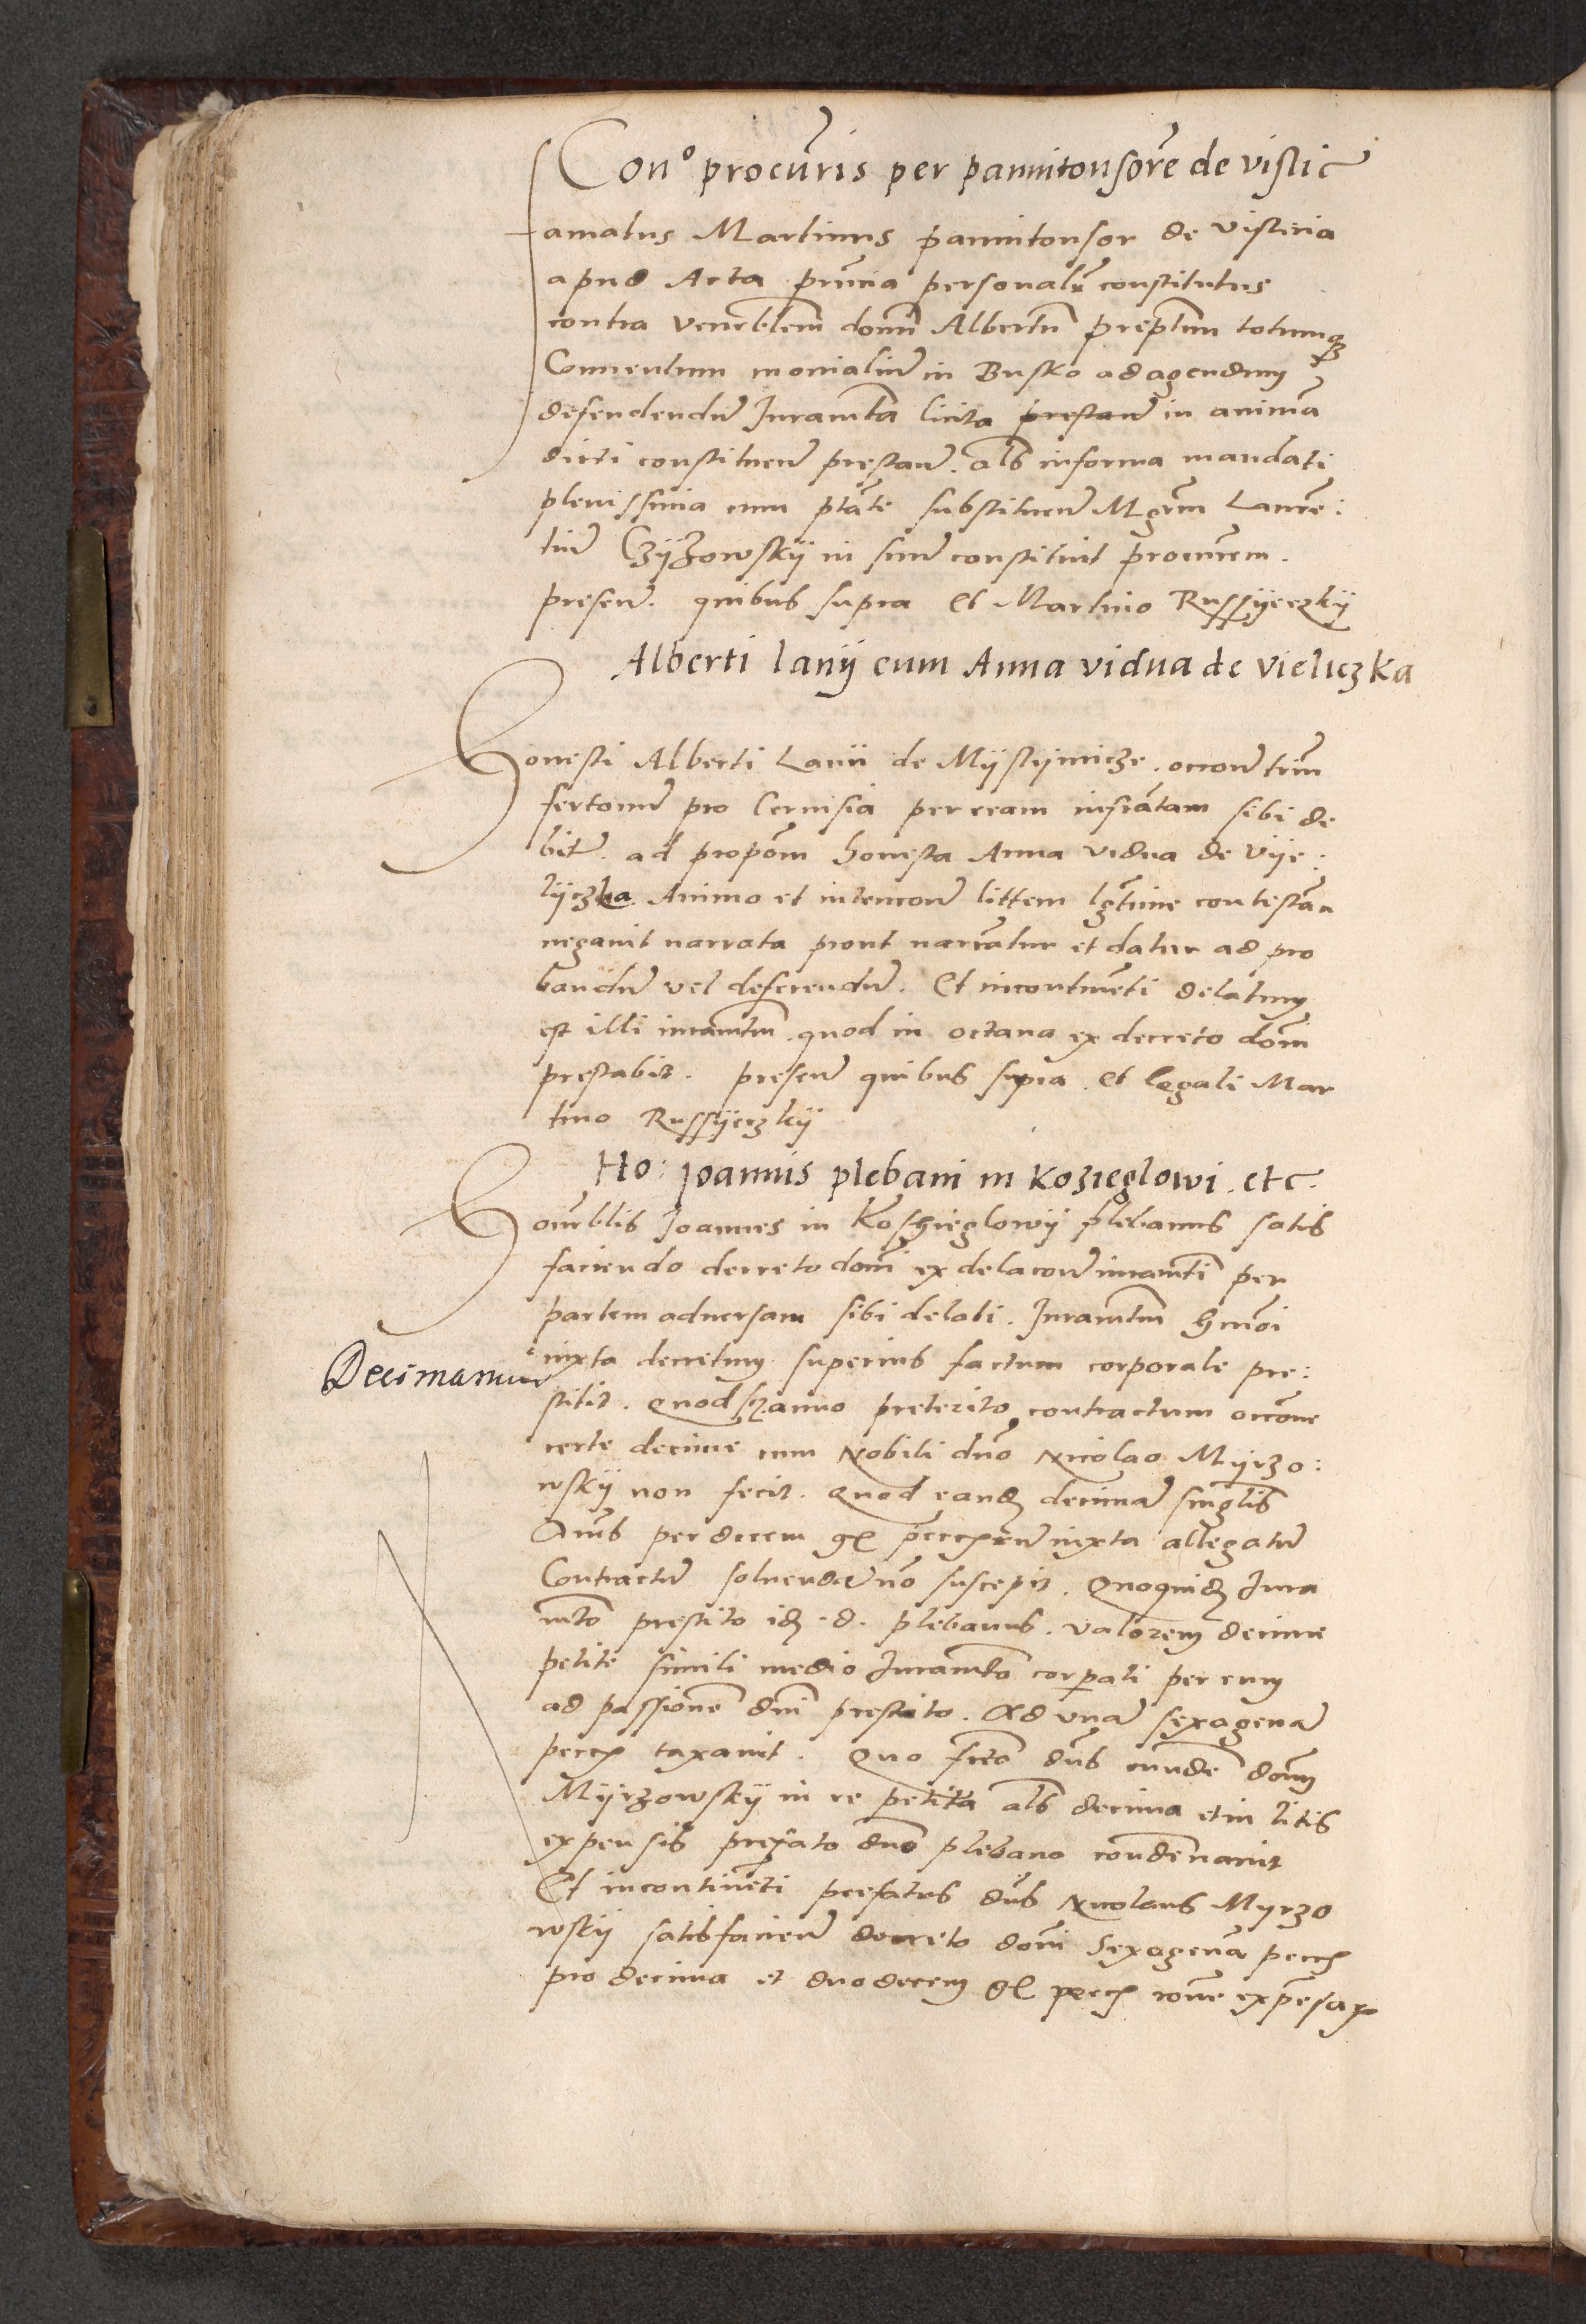 Con⁰ procuris per pannitonsore de vislic
Famatus Martinus pannitonsor de visticia
apud Acta prncia personalr constitutus
contra venerblem domn Albertu preptum totumq
Conventum monialiu in Busko ad agendum
defendendu Juramta licita prestan in anima
dicti constituen prestan. als in forma mandati
plenissima cum ptate substituen Mgrm Lauren:
tiu Czyzowskij in suu constituit procurem.
presen. quibus supra et Martino Russyeczkij
Alberti lanij cum Anna vidua de vieliczka
Honesti Alberti Lanii de Mijslijmicze. occone trium
fertonu pro Cervisia per eeam infratam sibi de
bitr. ad propom honesta Anna vidua de vije:
lijczka. Animo et intencone littem lgtime contestan
negavit narrata prout narratur et datur ad pro
bandu vel deferendu. Et incontinenti delatum
est illi iuramtm quod in octava ex decreto domi
prestabit. presen quibus supra. et legali Mar
tino Russyeczkij
Ho: Joannis plebani in kozieglowi. etc.
Honorblis Joannes in Koszieglowij plebanus satis
faciendo decreto domi ex delacone iuramti per
partem adversam sibi delati. Juramtum hmoi
iuxta decretum superius factum corporale pre:
Decimarum
stitit. Quod sz anno preterito contractum occone
certe decime cum Nobili dno Nicolao Myrzo:
wskij non fecit. Quod eand decima singlis
Anis per decem gl pecch iuxta allegatu
Contractu solvenda no suscepit. Quoquid Jura
mto prestito id. d. plebanus. valorem decime
petite simili medio Juramto corpali per eum
ad passione dni prestito. Ad una sexagena
pecch taxavit. Quo fcto dns eunde domn
Myrzowskij in re petita als decima et in litis
expensis prefato dno plebano condemnavit
Et incontineti prefatus dns Nicolaus Myrzo
wskij satisfacien decreto domi Sexagena pecch
pro decima et duodecem gl pecch rone expensar